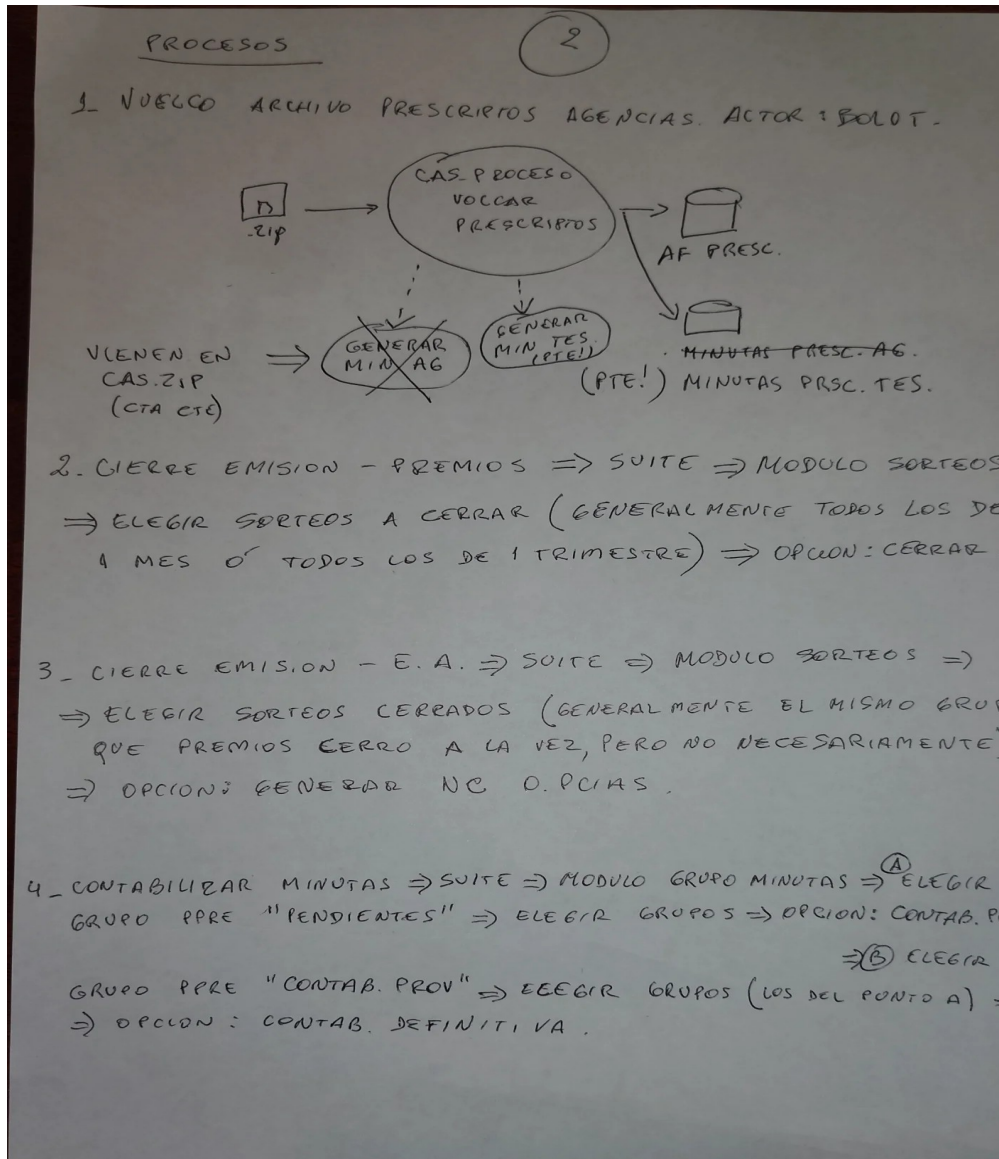 PROCESOS
2
1_ VUELCO ARCHIVO PRESCRIPTOS AGENCIAS. ACTOR : BOLDT.
CAS_PROCESO
VOLCAR
PRESCRIPTOS
.ZIP
AF PRESC.
GENERAR
MIN AG
GENERAR
MIN TES.
(PTE!)
VIENEN EN
CAS.ZIP
(CTA CTE)
MINUTAS PRESC. AG.
(PTE!) MINUTAS PRSC. TES.
2_ CIERRE EMISION - PREMIOS => SUITE => MODULO SORTEOS
=> ELEGIR SORTEOS A CERRAR (GENERALMENTE TODOS LOS DE
1 MES Ó TODOS LOS DE 1 TRIMESTRE) => OPCION: CERRAR
3_ CIERRE EMISION - E.A. => SUITE => MODULO SORTEOS =>
=> ELEGIR SORTEOS CERRADOS (GENERALMENTE EL MISMO GRUP
QUE PREMIOS CERRO A LA VEZ, PERO NO NECESARIAMENTE)
=> OPCION: GENERAR NC O. PCIAS.
4_ CONTABILIZAR MINUTAS => SUITE => MODULO GRUPO MINUTAS => (A) ELEGIR
GRUPO PPRE "PENDIENTES" => ELEGIR GRUPOS => OPCION: CONTAB. P
=> (B) ELEGIR
GRUPO PPRE "CONTAB. PROV" => ELEGIR GRUPOS (LOS DEL PUNTO A)
=> OPCION : CONTAB. DEFINITIVA.